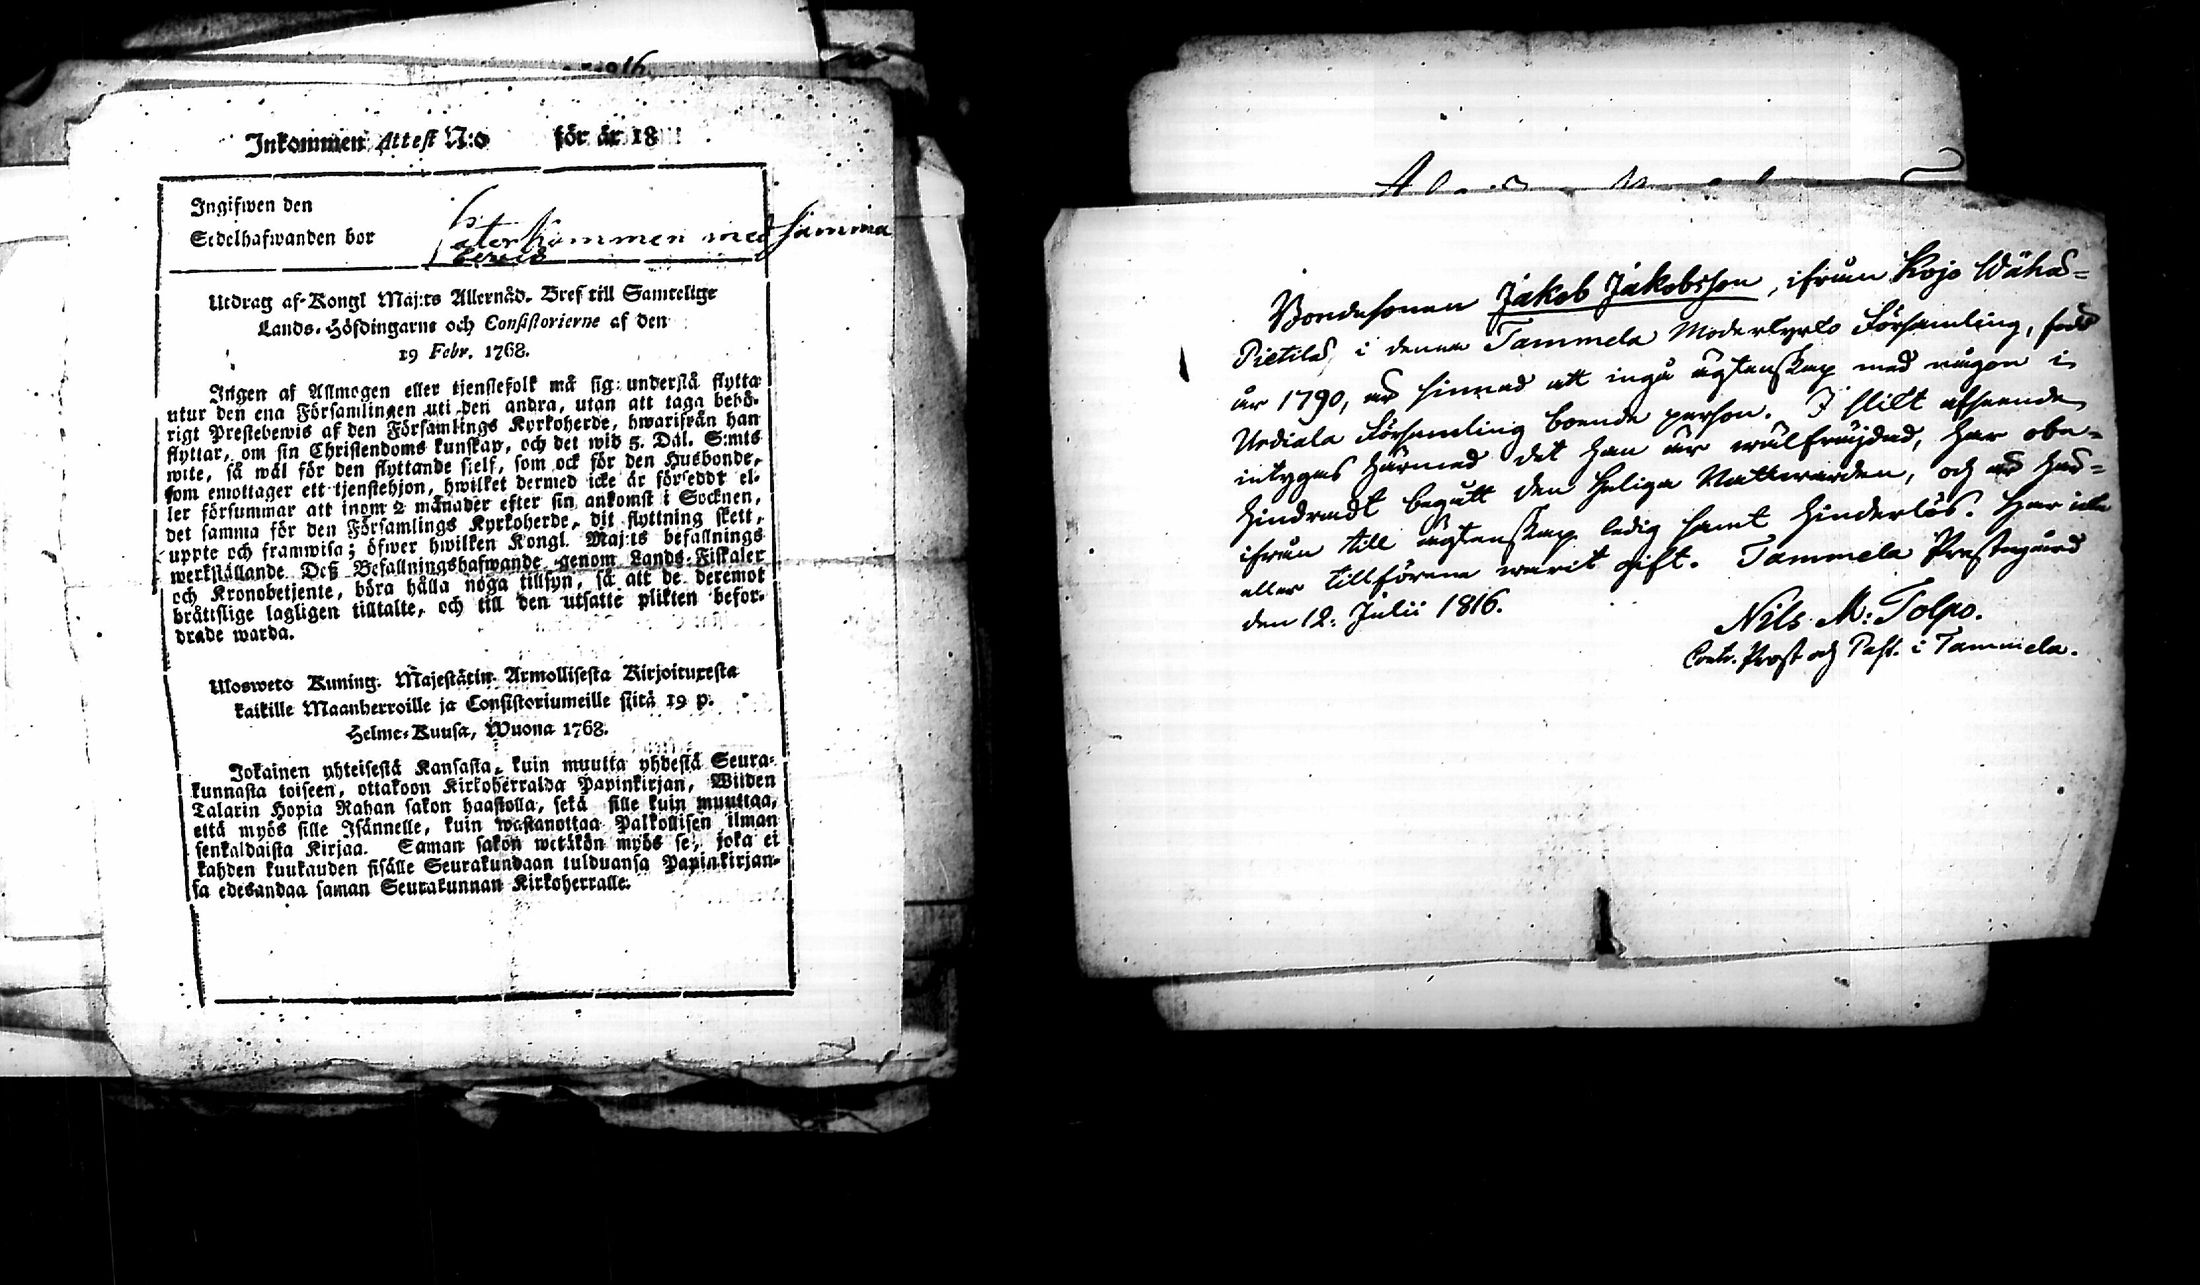 Inkommen Attest N:o för år 18
Ingifwen den
Sedelhafwanden bor
återkommen med samma
bevis
Utdrag af Kongl Maj:ts Allernåd. Bref till Samtelige
Lands-Höfdingarne och Consistorierne af den
19 Febr. 1768.
Ingen af Allmogen eller tjenstefolk må sig understå flytta
utur den ena Församlingen uti den andra, utan att taga behö-
rigt Prestebewis af den Församlings Kyrkoherde, hwarifrån han
flyttar, om sin Christendoms kunskap, och det wid 5. Dal. S:mts
wite, så wäl för den flyttande sielf, som ock för den Husbonde,
som emottager ett tjenstehjon, hwilket dermed icke är försedt el-
ler försummar att inom 2 månader efter sin ankomst i Socknen,
det samma för den Församlings Kyrkoherde, dit flyttning skett,
uppte och framwisa; öfwer hwilken Kongl. Maj:ts befallnings
werkställande Deß Befallningshafwande genom Lands-Fiskaler
och Kronobetjente, böra hålla noga tillsyn, så att de deremot
bråttslige lagligen tilltalte, och till den utsatte plikten befor-
drade warda.
Ulosweto Kuning. Majestätin Armollisesta Kirjoituxesta
kaikille Maanherroille ja Consistoriumeille siitä 19 p.
Helme-Kuusa, Wuona 1768.
Jokainen yhteisestä Kansasta, kuin muutta yhdestä Seura-
kunnasta toiseen, ottakoon Kirkoherralda Papinkirjan, Wiiden
Talarin Hopia Rahan sakon haastolla, sekä sille kuin muuttaa,
että myös sille Isännelle, kuin wastanottaa Palkollisen ilman
senkaldaista Kirjaa. Saman sakon wetäkön myös se, joka ei
kahden kuukauden sisälle Seurakundaan tulduansa Papinkirjan-
sa edesandaa saman Seurakunnan Kirkoherralle.
Bondesonen Jakob Jakobsson, ifrån Kojo Wäha-
Pietilä, i denna Tammela Moderkyrko Församling, född
år 1790, är sinnad att ingå ägtenskap med någon i
Urdiala Församling boende person. I slikt afseende
intygas härmed det han är wälfräjdad, har obe-
hindradt begått den heliga Nattwarden, och är här-
ifrån till ägtenskap ledig samt hinderlös. Har icke
eller tillförene warit gift. Tammela Prestegård
den 12. Julii 1816.
Nils M: Tolpo.
Contr. Prost och Past. i Tammela.